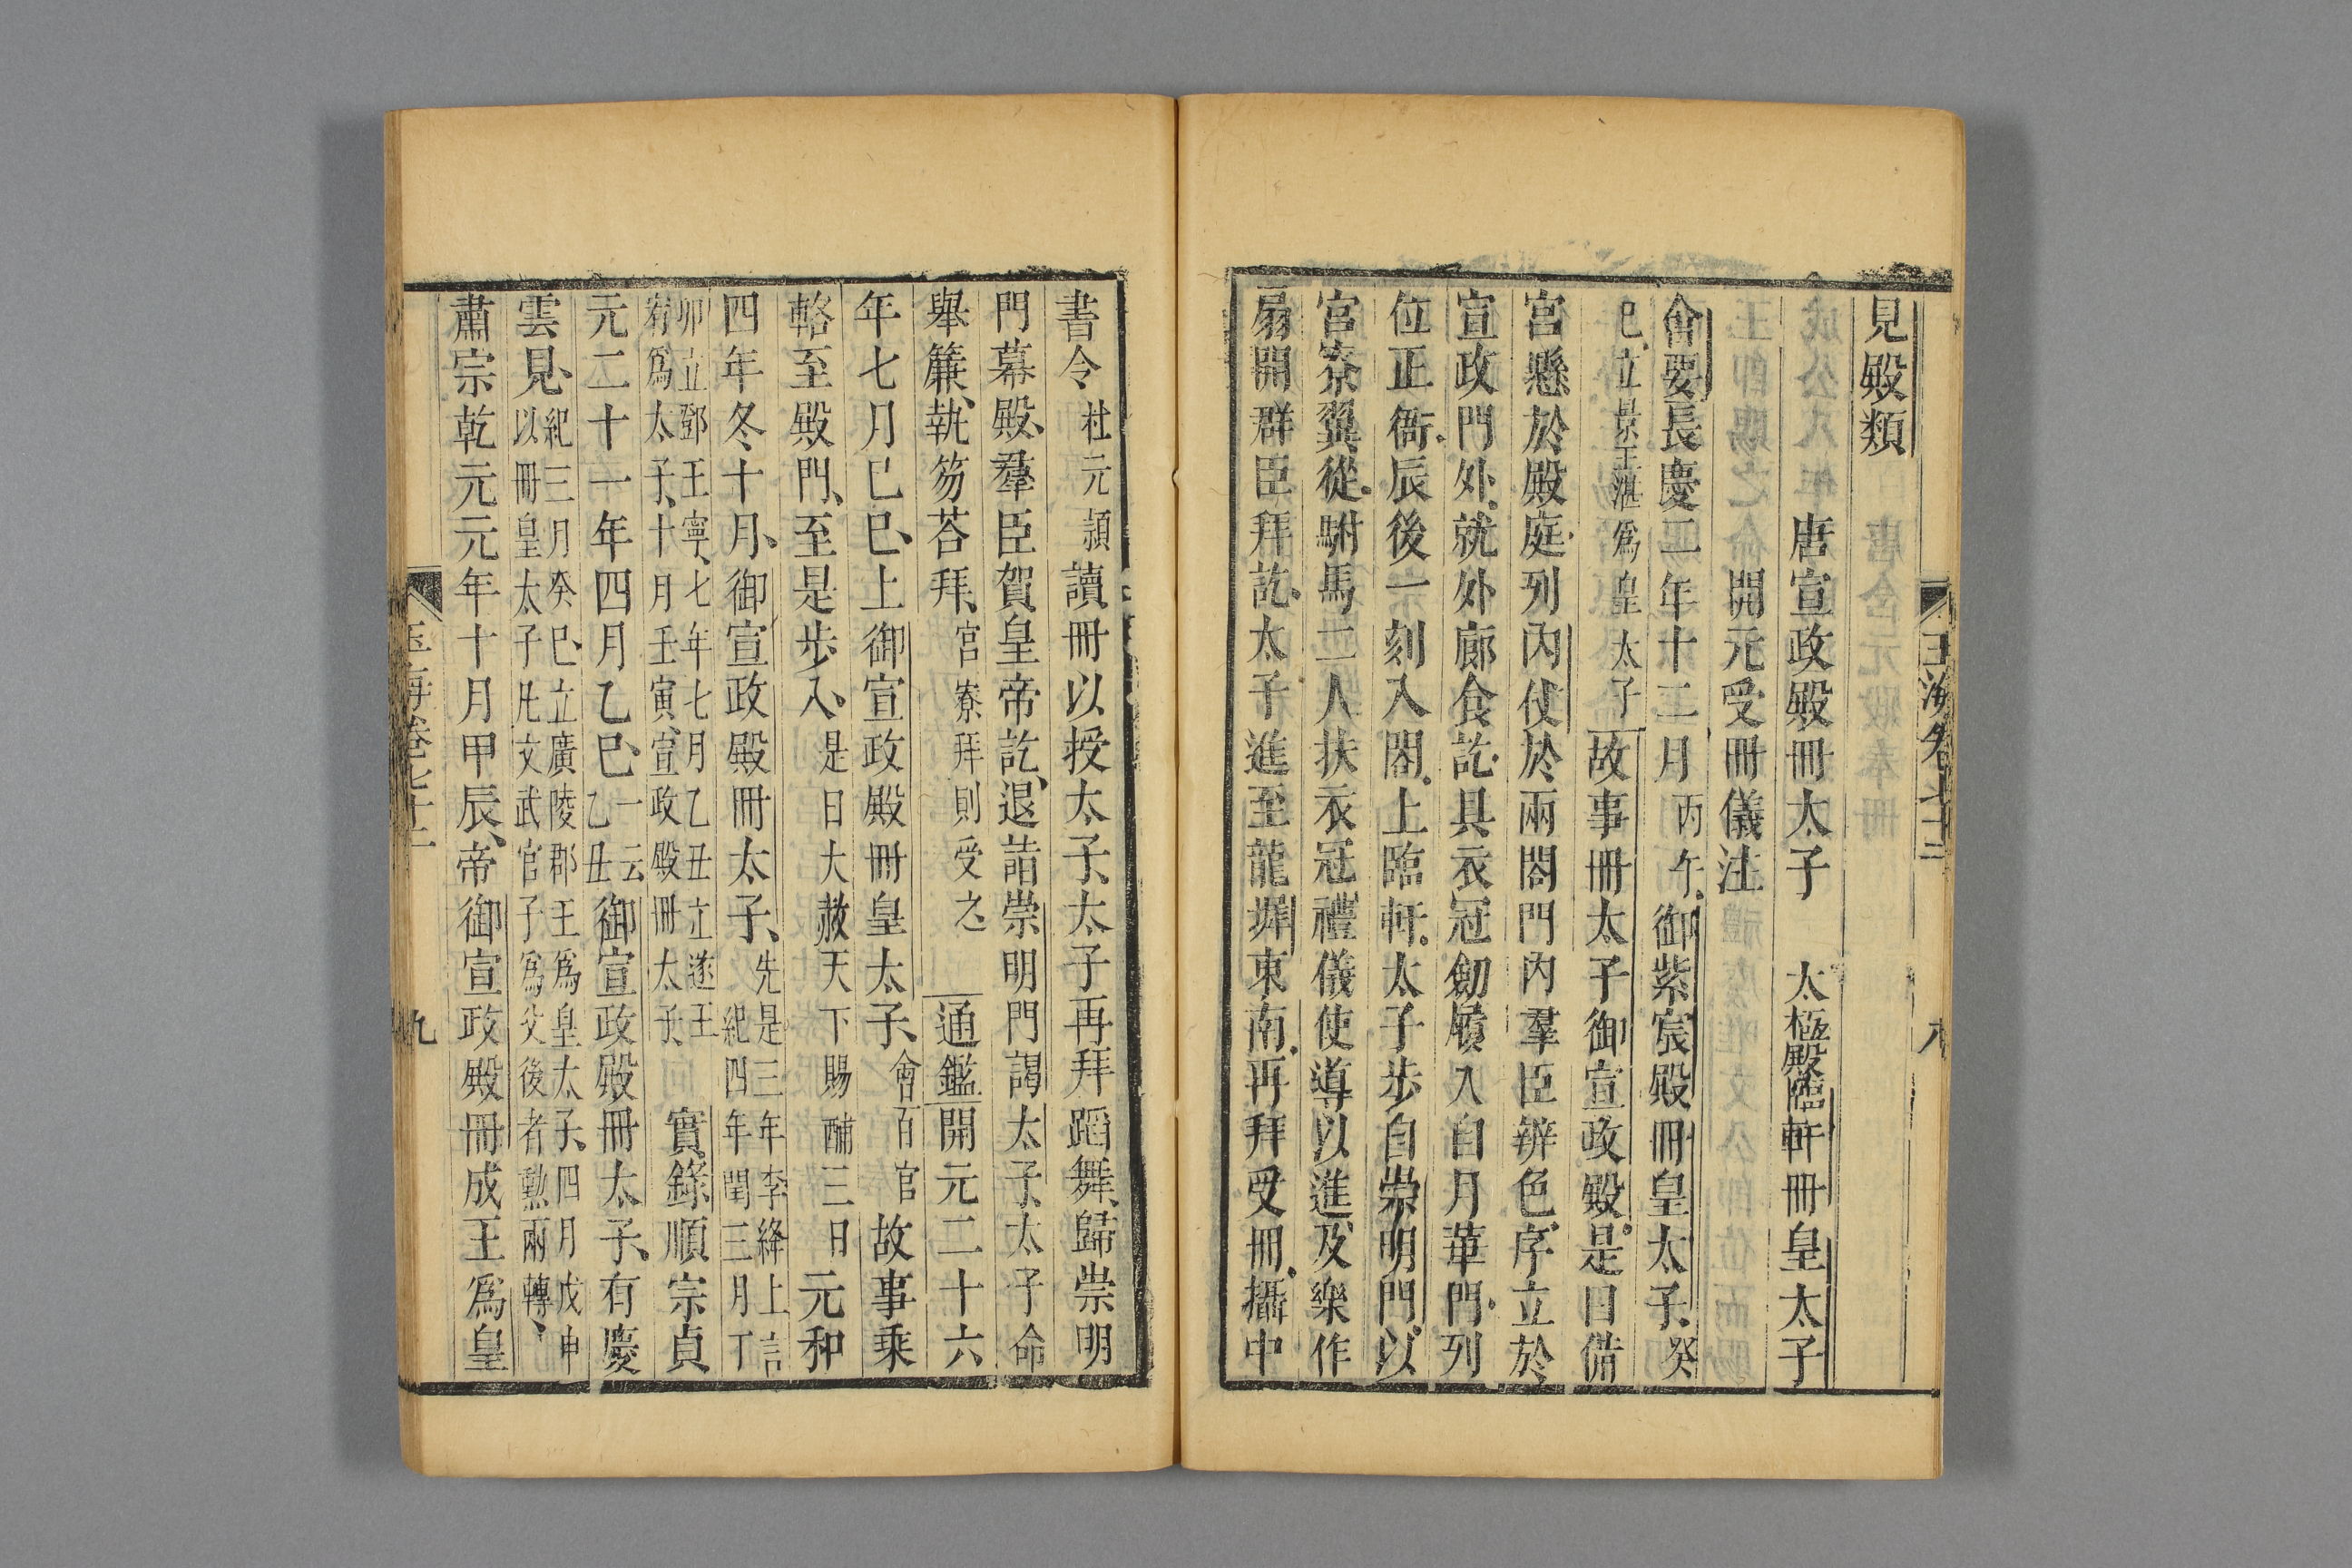 玉海卷七十二
八
見殿類
唐宣政殿冊太子　太極殿臨軒冊皇太子
開元受冊儀注
會要長慶二年十二月丙午御紫宸殿冊皇太子癸
巳立景王湛為皇太子故事冊太子御宣政殿是日備
宮懸於殿庭列內仗於兩閤門內羣臣辨色序立於
宣政門外就外廊食訖具衣冠劒履入自月華門列
位正衙辰後一刻入閤上臨軒太子步自崇明門以
宮寮翼從駙馬二人扶衣冠禮儀使導以進及樂作
扇開群臣拜訖太子進至龍墀東南再拜受冊攝中
書令杜元頴讀冊以授太子太子再拜蹈舞歸崇明
門幕殿羣臣賀皇帝訖退詣崇明門謁太子太子命
舉簾執笏荅拜宮寮拜則受之通鑑開元二十六
年七月己巳上御宣政殿冊皇太子會百官故事乘
輅至殿門至是步入是日大赦天下賜酺三日元和
四年冬十月御宣政殿冊太子先是三年李絳上言
紀四年閏三月丁
卯立鄧王寧七年七月乙丑立遂王
宥為太子十月壬寅宣政殿冊太子實錄順宗貞
元二十一年四月乙巳一云乙丑御宣政殿冊太子有慶
雲見紀三月癸巳立廣陵郡王為皇太子四月戊申
以冊皇太子凡文武官子為父後者勲兩轉
肅宗乾元元年十月甲辰帝御宣政殿冊成王為皇
玉海卷七十二
九